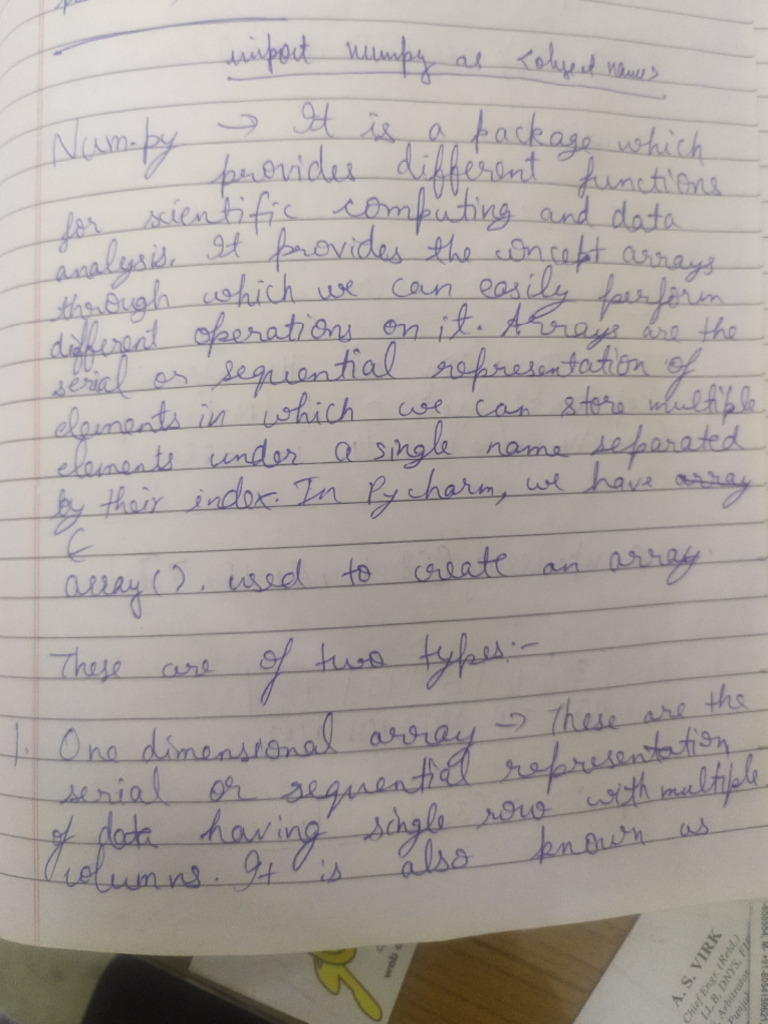 import numpy as <object name>
Num.py → It is a package which
provides different functions
for scientific computing and data
analysis. It provides the concept arrays
through which we can easily perform
different operations on it. Arrays are the
serial or sequential representation of
elements in which we can store multiple
elements under a single name separated
by their index. In Pycharm, we have array
array(). used to create an array
These are of two types:-
1. One dimensional array → These are the
serial or sequential representation
of data having single row with multiple
columns. It is also known as
web
A. S. VIRK
Chief Engr. (Retd.)
LL.B, DNYS,
Arbitrator